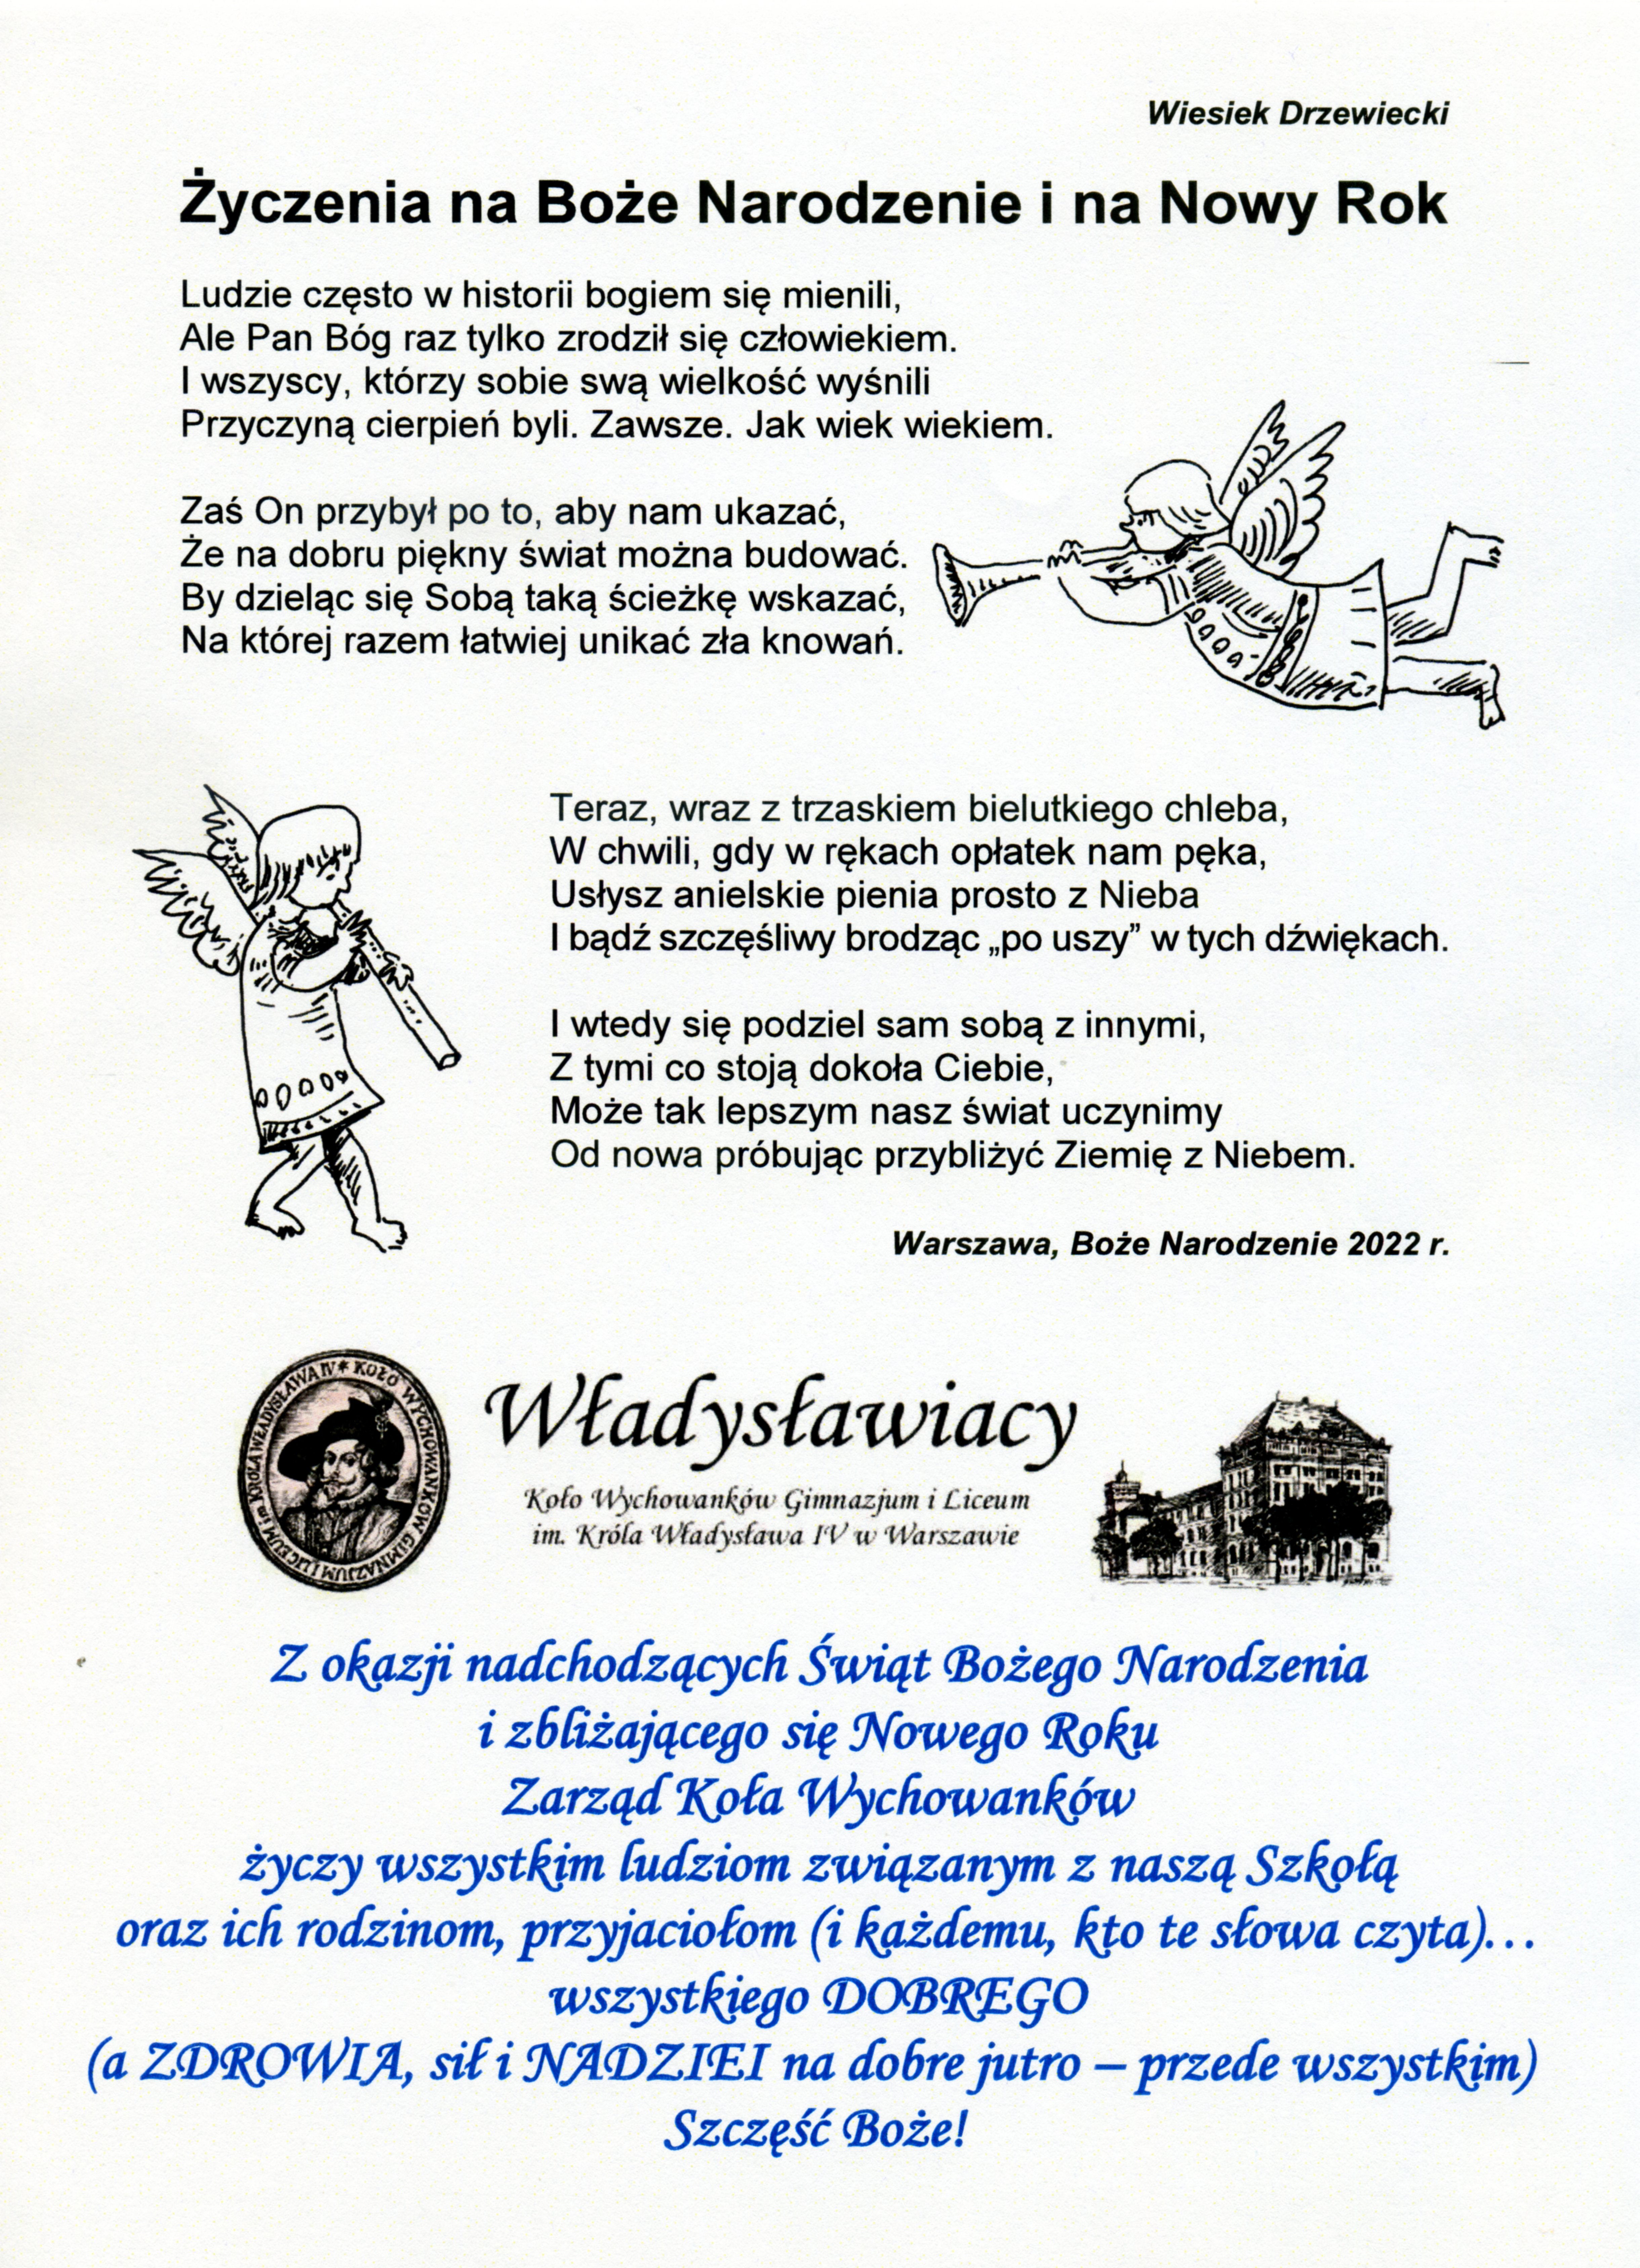 Wiesiek Drzewiecki
Życzenia na Boże Narodzenie i na Nowy Rok
Ludzie często w historii bogiem się mienili,
Ale Pan Bóg raz tylko zrodził się człowiekiem.
I wszyscy, którzy sobie swą wielkość wyśnili
Przyczyną cierpień byli. Zawsze. Jak wiek wiekiem.
Zaś On przybył po to, aby nam ukazać,
Że na dobru piękny świat można budować.
By dzieląc się Sobą taką ścieżkę wskazać,
Na której razem łatwiej unikać zła knowań.
Teraz, wraz z trzaskiem bielutkiego chleba,
W chwili, gdy w rękach opłatek nam pęka,
Usłysz anielskie pienia prosto z Nieba
I bądź szczęśliwy brodząc „po uszy” w tych dźwiękach.
I wtedy się podziel sam sobą z innymi,
Z tymi co stoją dokoła Ciebie,
Może tak lepszym nasz świat uczynimy
Od nowa próbując przybliżyć Ziemię z Niebem.
Warszawa, Boże Narodzenie 2022 r.
KOŁO WYCHOWANKÓW GIMNAZJUM I LICEUM im KRÓLA WŁADYSŁAWA IV *
Władysławiacy
Koło Wychowanków Gimnazjum i Liceum
im. Króla Władysława IV w Warszawie
Z okazji nadchodzących Świąt Bożego Narodzenia
i zbliżającego się Nowego Roku
Zarząd Koła Wychowanków
życzy wszystkim ludziom związanym z naszą Szkołą
oraz ich rodzinom, przyjaciołom (i każdemu, kto te słowa czyta)...
wszystkiego DOBREGO
(a ZDROWIA, sił i NADZIEI na dobre jutro – przede wszystkim)
Szczęść Boże!